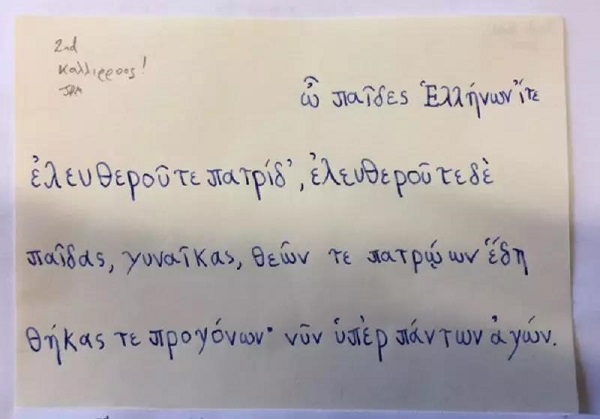 2nd
καλλιρροος!
ὦ παῖδες Ἑλλήνων ἴτε
ἐλευθεροῦτε πατρίδ', ἐλευθεροῦτε δὲ
παῖδας, γυναῖκας, θεῶν τε πατρῴων ἕδη
θήκας τε προγόνων· νῦν ὑπὲρ πάντων ἀγών.